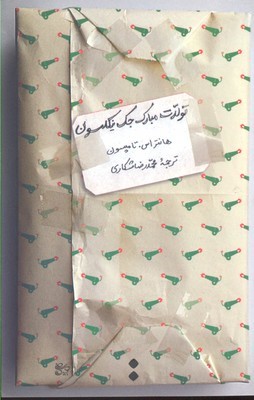 تولدت مبارک جک نیکلسون
هانتر اس. تامپسون
ترجمهٔ محمدرضا شکاری